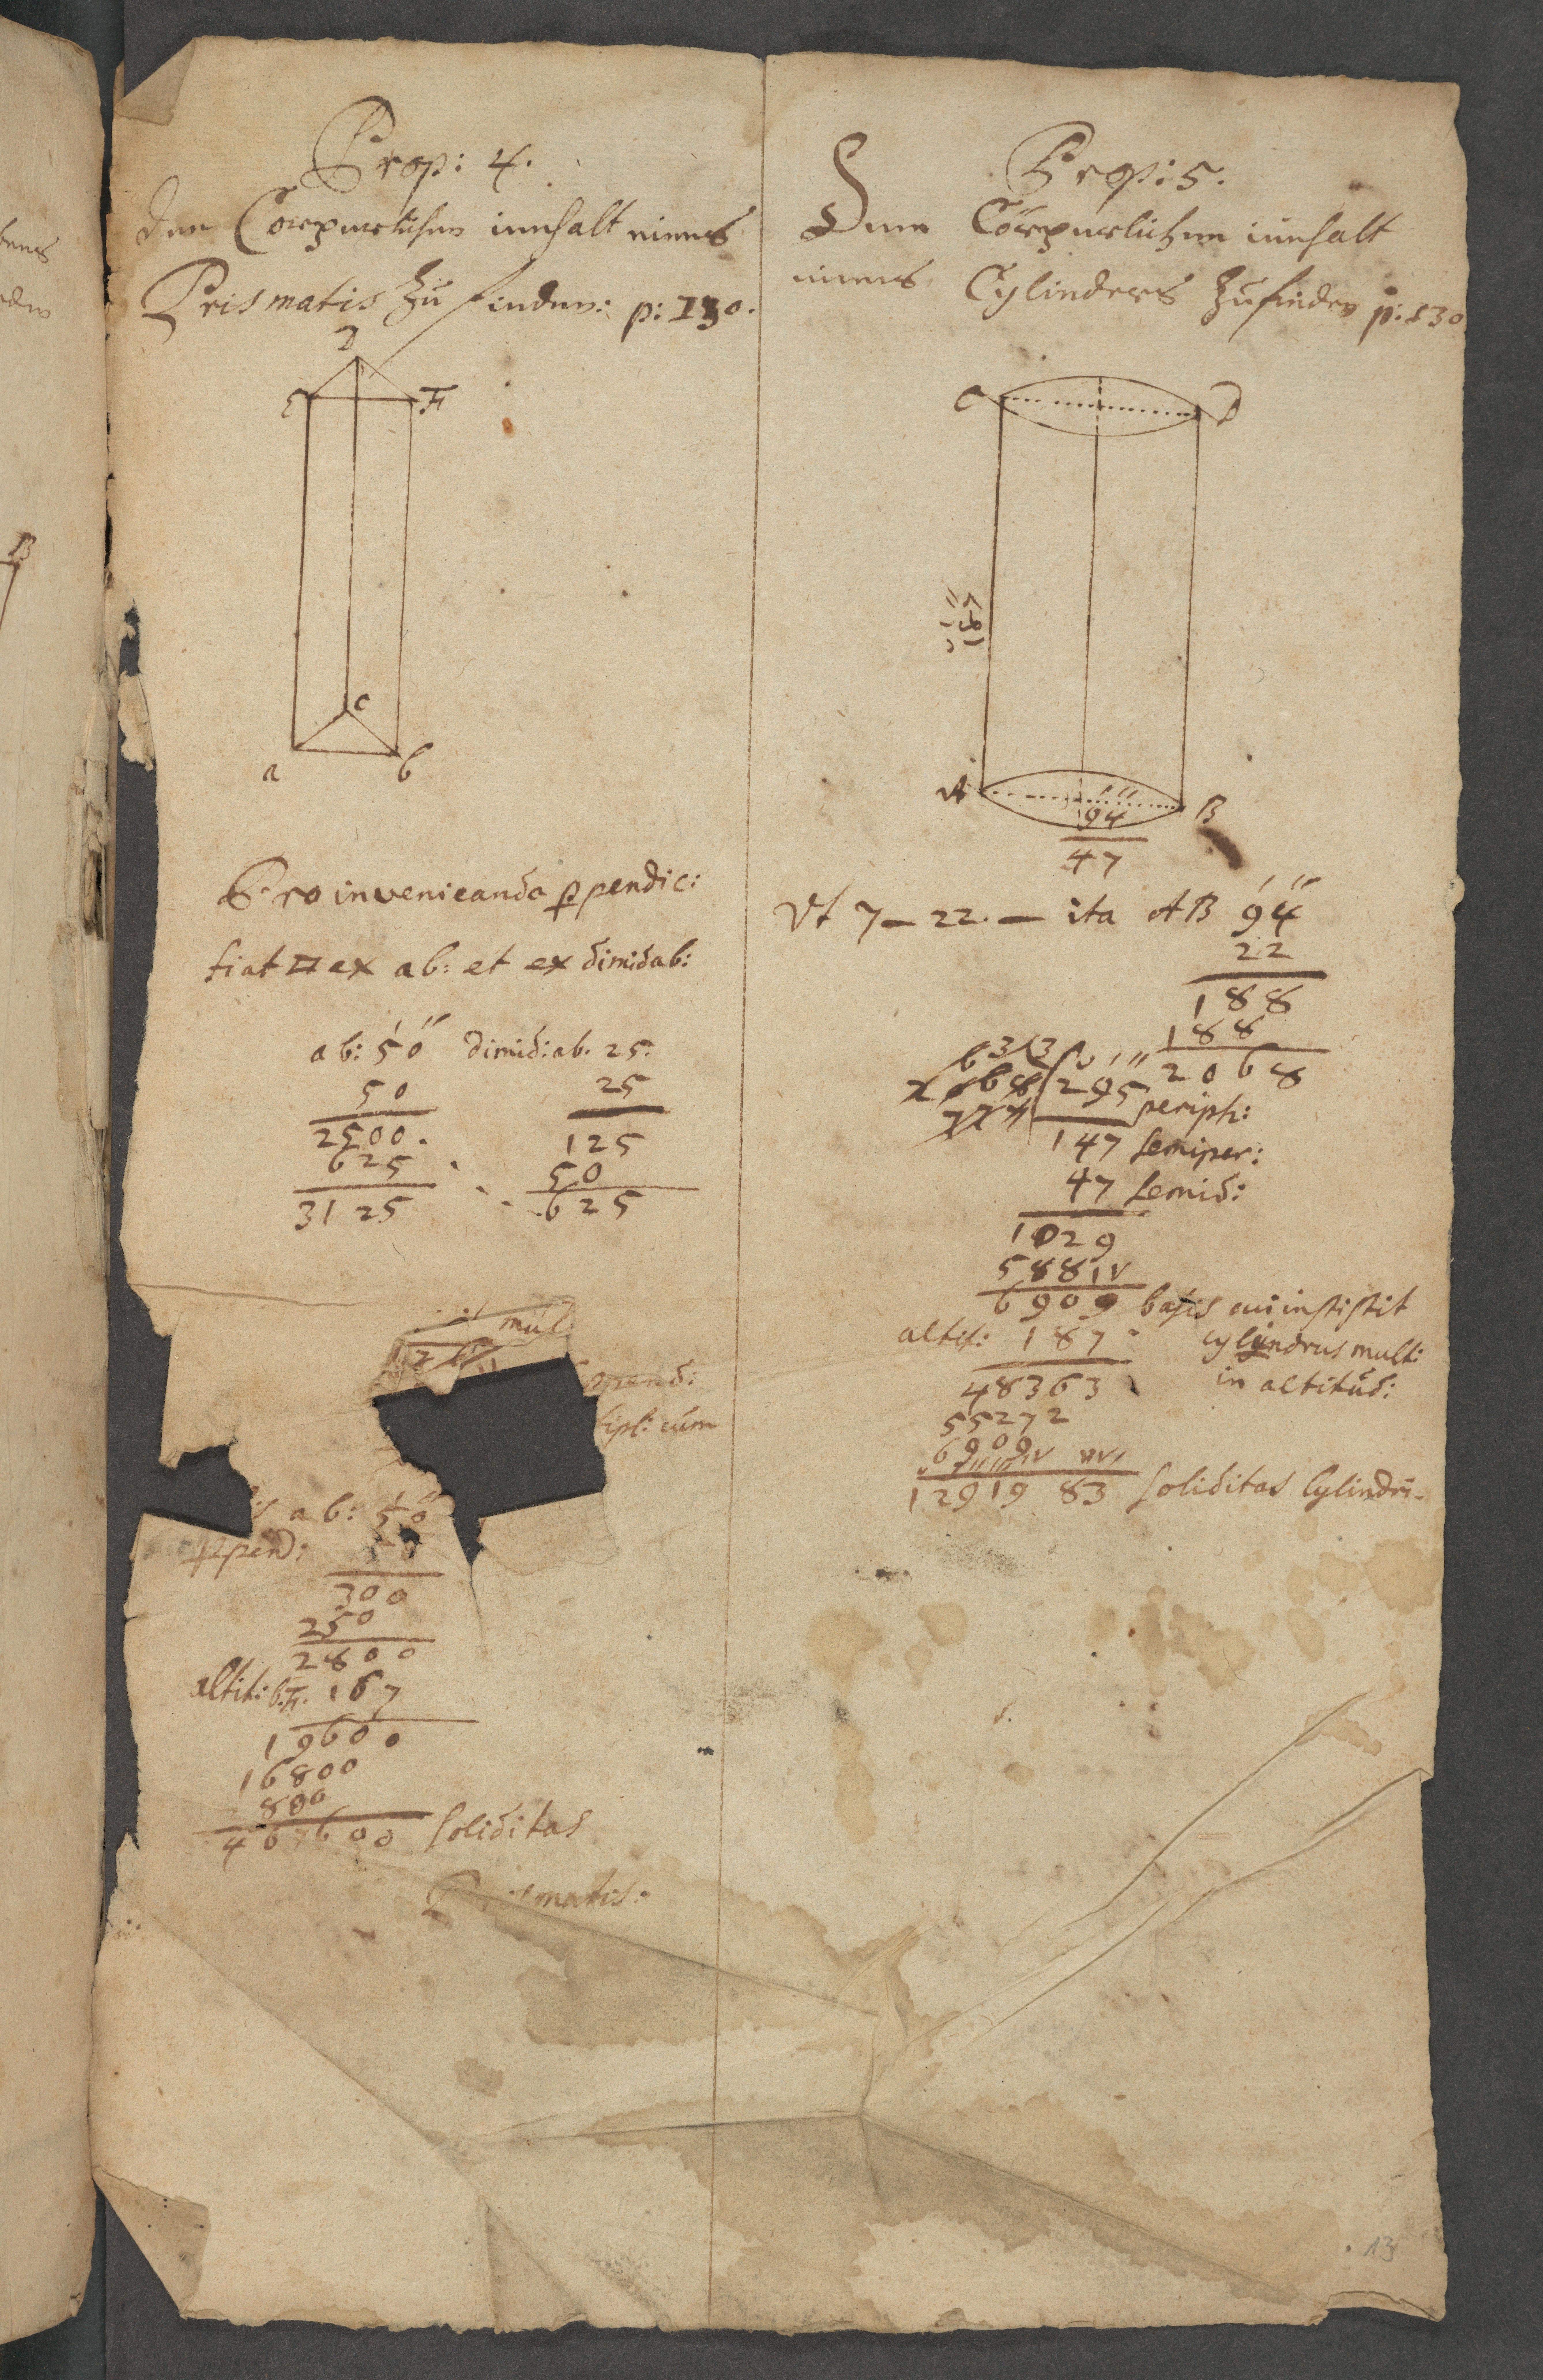 Prop: 4.
Den Cörperlichen innhalt eines
Prismatis zu finden: p: 130.
D
E F
c
a b
Pro invenieanda ꝑpendic:
fiat □ ex ab: et ex dimid ab:
ab: 5′0″ dimid: ab. 25.
50 25
2500. 125
625 50
3125 625
mul
pend:
tipl: cum
is ab: 5′0″
ꝑpend:
300
250
2800
altit: b.F. 167
19600
16800
800
467600 Soliditas
Prismatis:
Prop: 5.
Denn Cörperlichen innhalt
eines Cylinders zu finden p: 130
C D
A B
94
47
Vt 7 — 22. — ita AB 9′4″
22
188
188
2068
295 periph:
147 semiper:
47 semid:
1029
588
6909 basis cui insistit
altit: 187 cylindrus mult:
48363 in altitud:
55272
6909
12919 83 Soliditas Cylindri.
13